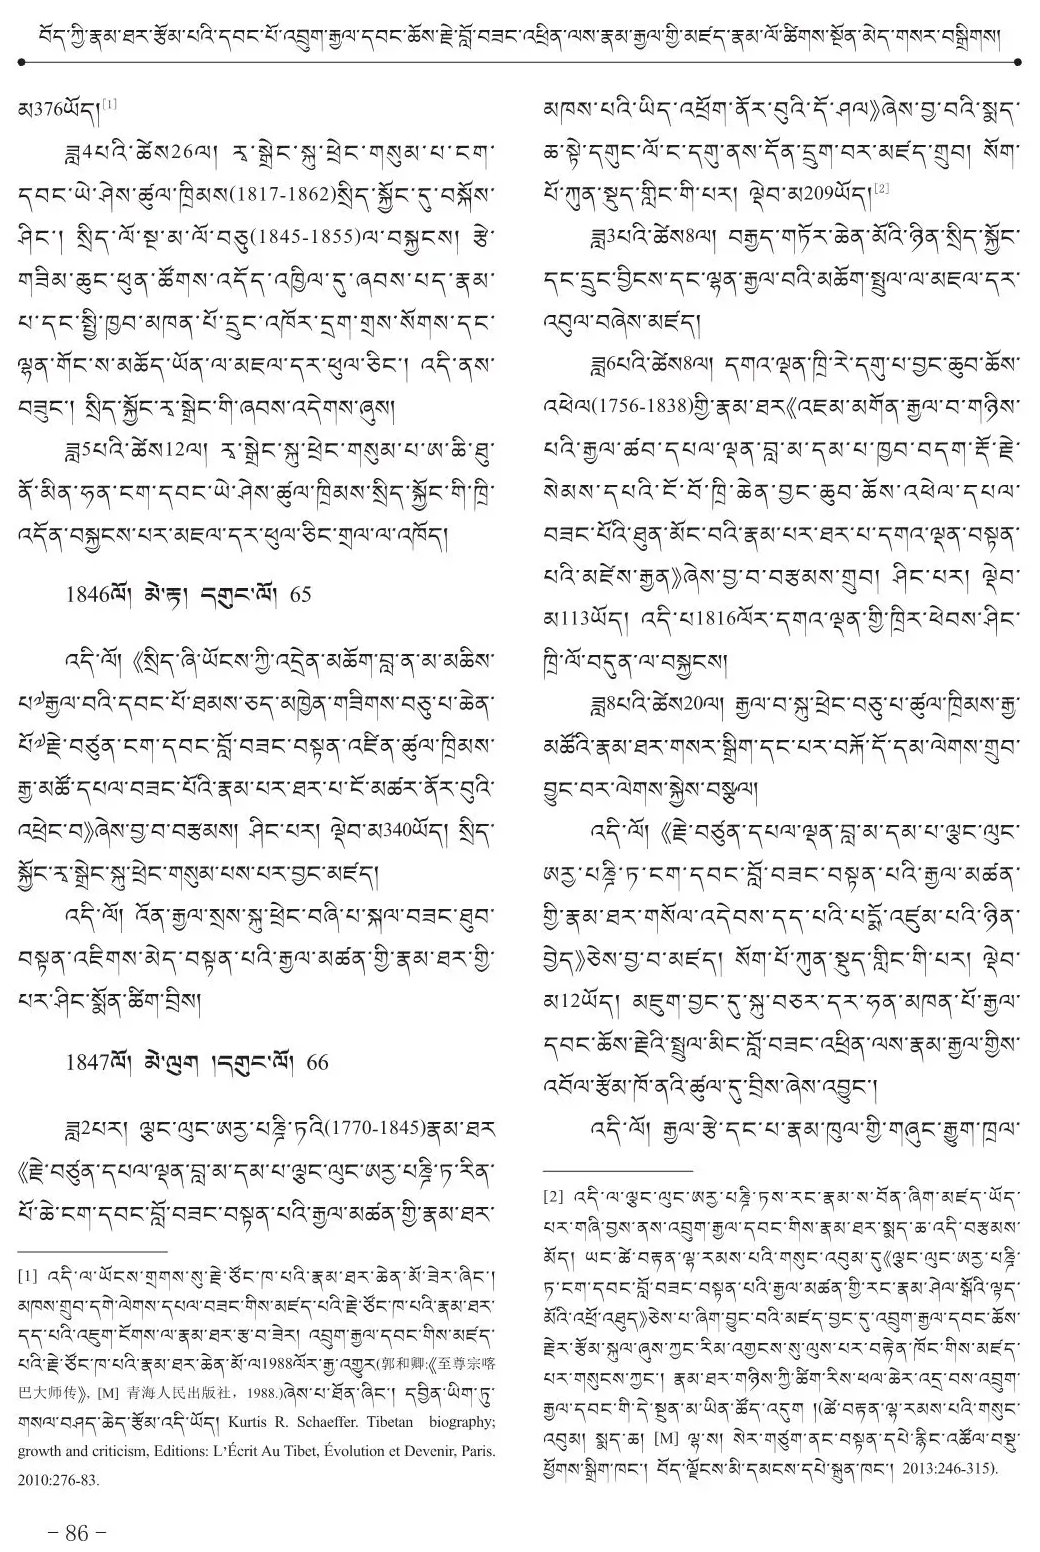 བོད་ཀྱི་རྣམ་ཐར་རྩོམ་པའི་དབང་པོ་འབྲུག་རྒྱལ་དབང་ཆོས་རྗེ་བློ་བཟང་འཕྲིན་ལས་རྣམ་རྒྱལ་གྱི་མཛད་རྣམ་ལོ་ཚིགས་སྔོན་མེད་གསར་བསྒྲིགས།
མ376ཡོད།[1]
ཟླ4པའི་ཚེས26ལ། རྭ་སྒྲེང་སྐུ་ཕྲེང་གསུམ་པ་ངག་
དབང་ཡེ་ཤེས་ཚུལ་ཁྲིམས(1817-1862)སྲིད་སྐྱོང་དུ་བསྐོས་
ཤིང་། སྲིད་ལོ་སྔ་མ་ལོ་བཅུ(1845-1855)ལ་བསྐྱངས། རྩེ་
གཟིམ་ཆུང་ཕུན་ཚོགས་འདོད་འཁྱིལ་དུ་ཞབས་པད་རྣམ་
པ་དང་སྤྱི་ཁྱབ་མཁན་པོ་དྲུང་འཁོར་དྲག་གྲས་སོགས་དང་
ལྷན་གོང་ས་མཆོད་ཡོན་ལ་མཇལ་དར་ཕུལ་ཅིང་། འདི་ནས་
བཟུང་། སྲིད་སྐྱོང་རྭ་སྒྲེང་གི་ཞབས་འདེགས་ཞུས།
ཟླ5པའི་ཚེས12ལ། རྭ་སྒྲེང་སྐུ་ཕྲེང་གསུམ་པ་ཨ་ཆི་ཐུ་
ནོ་མིན་ཧན་ངག་དབང་ཡེ་ཤེས་ཚུལ་ཁྲིམས་སྲིད་སྐྱོང་གི་ཁྲི་
འདོན་བསྐྱངས་པར་མཇལ་དར་ཕུལ་ཅིང་གྲལ་ལ་འཁོད།
1846ལོ། མེ་རྟ། དགུང་ལོ། 65
འདི་ལོ། 《སྲིད་ཞི་ཡོངས་ཀྱི་འདྲེན་མཆོག་བླ་ན་མ་མཆིས་
པ༡རྒྱལ་བའི་དབང་པོ་ཐམས་ཅད་མཁྱེན་གཟིགས་བཅུ་པ་ཆེན་
པོ༡རྗེ་བཙུན་ངག་དབང་བློ་བཟང་བསྟན་འཛིན་ཚུལ་ཁྲིམས་
རྒྱ་མཚོ་དཔལ་བཟང་པོའི་རྣམ་པར་ཐར་པ་ངོ་མཚར་ནོར་བུའི་
འཕྲེང་བ》ཞེས་བྱ་བ་བརྩམས། ཤིང་པར། ལྡེབ་མ340ཡོད། སྲིད་
སྐྱོང་རྭ་སྒྲེང་སྐུ་ཕྲེང་གསུམ་པས་པར་བྱང་མཛད།
འདི་ལོ། འོན་རྒྱལ་སྲས་སྐུ་ཕྲེང་བཞི་པ་སྐལ་བཟང་ཐུབ་
བསྟན་འཇིགས་མེད་བསྟན་པའི་རྒྱལ་མཚན་གྱི་རྣམ་ཐར་གྱི་
པར་ཤིང་སྨོན་ཚིག་བྲིས།
1847ལོ། མེ་ལུག །དགུང་ལོ། 66
ཟླ2པར། ལྕང་ལུང་ཨརྱ་པཎྜི་ཏའི(1770-1845)རྣམ་ཐར
《རྗེ་བཙུན་དཔལ་ལྡན་བླ་མ་དམ་པ་ལྕང་ལུང་ཨརྱ་པཎྜི་ཏ་རིན་
པོ་ཆེ་ངག་དབང་བློ་བཟང་བསྟན་པའི་རྒྱལ་མཚན་གྱི་རྣམ་ཐར་
[1] འདི་ལ་ཡོངས་གྲགས་སུ་རྗེ་ཙོང་ཁ་པའི་རྣམ་ཐར་ཆེན་མོ་ཟེར་ཞིང་།
མཁས་གྲུབ་དགེ་ལེགས་དཔལ་བཟང་གིས་མཛད་པའི་རྗེ་ཙོང་ཁ་པའི་རྣམ་ཐར་
དད་པའི་འཇུག་ངོགས་ལ་རྣམ་ཐར་རྩ་བ་ཟེར། འབྲུག་རྒྱལ་དབང་གིས་མཛད་
པའི་རྗེ་ཙོང་ཁ་པའི་རྣམ་ཐར་ཆེན་མོ་ལ1988ལོར་རྒྱ་འགྱུར(郭和卿:《至尊宗喀
巴大师传》, [M] 青海人民出版社，1988.)ཞེས་པ་ཐོན་ཞིང་། དབྱིན་ཡིག་ཏུ་
གསལ་བཤད་ཆེད་རྩོམ་འདི་ཡོད། Kurtis R. Schaeffer. Tibetan biography;
growth and criticism, Editions: L’Écrit Au Tibet, Évolution et Devenir, Paris.
2010:276-83.
མཁས་པའི་ཡིད་འཕྲོག་ནོར་བུའི་དོ་ཤལ》ཞེས་བྱ་བའི་སྨད་
ཆ་སྟེ་དགུང་ལོ་ང་དགུ་ནས་དོན་དྲུག་བར་མཛད་གྲུབ། སོག་
པོ་ཀུན་སྡུད་གླིང་གི་པར། ལྡེབ་མ209ཡོད།[2]
ཟླ3པའི་ཚེས8ལ། བརྒྱད་གཏོར་ཆེན་མོའི་ཉིན་སྲིད་སྐྱོང་
དང་དྲུང་བྱིངས་དང་ལྷན་རྒྱལ་བའི་མཆོག་སྤྲུལ་ལ་མཇལ་དར་
འབུལ་བཞེས་མཛད།
ཟླ6པའི་ཚེས8ལ། དགའ་ལྡན་ཁྲི་རེ་དགུ་པ་བྱང་ཆུབ་ཆོས་
འཕེལ(1756-1838)གྱི་རྣམ་ཐར《འཇམ་མགོན་རྒྱལ་བ་གཉིས་
པའི་རྒྱལ་ཚབ་དཔལ་ལྡན་བླ་མ་དམ་པ་ཁྱབ་བདག་རྡོ་རྗེ་
སེམས་དཔའི་ངོ་བོ་ཁྲི་ཆེན་བྱང་ཆུབ་ཆོས་འཕེལ་དཔལ་
བཟང་པོའི་ཐུན་མོང་བའི་རྣམ་པར་ཐར་པ་དགའ་ལྡན་བསྟན་
པའི་མཛེས་རྒྱན》ཞེས་བྱ་བ་བརྩམས་གྲུབ། ཤིང་པར། ལྡེབ་
མ113ཡོད། འདི་པ1816ལོར་དགའ་ལྡན་གྱི་ཁྲིར་ཕེབས་ཤིང་
ཁྲི་ལོ་བདུན་ལ་བསྐྱངས།
ཟླ8པའི་ཚེས20ལ། རྒྱལ་བ་སྐུ་ཕྲེང་བཅུ་པ་ཚུལ་ཁྲིམས་རྒྱ་
མཚོའི་རྣམ་ཐར་གསར་སྒྲིག་དང་པར་བརྐོ་དོ་དམ་ལེགས་གྲུབ་
བྱུང་བར་ལེགས་སྐྱེས་བསྩལ།
འདི་ལོ། 《རྗེ་བཙུན་དཔལ་ལྡན་བླ་མ་དམ་པ་ལྕང་ལུང་
ཨརྱ་པཎྜི་ཏ་ངག་དབང་བློ་བཟང་བསྟན་པའི་རྒྱལ་མཚན་
གྱི་རྣམ་ཐར་གསོལ་འདེབས་དད་པའི་པདྨོ་འཛུམ་པའི་ཉིན་
བྱེད》ཅེས་བྱ་བ་མཛད། སོག་པོ་ཀུན་སྡུད་གླིང་གི་པར། ལྡེབ་
མ12ཡོད། མཇུག་བྱང་དུ་སྐུ་བཅར་དར་ཧན་མཁན་པོ་རྒྱལ་
དབང་ཆོས་རྗེའི་སྤྲུལ་མིང་བློ་བཟང་འཕྲིན་ལས་རྣམ་རྒྱལ་གྱིས་
འབོལ་རྩོམ་ཁོ་ནའི་ཚུལ་དུ་བྲིས་ཞེས་འབྱུང་།
འདི་ལོ། རྒྱལ་རྩེ་དང་པ་རྣམ་ཁུལ་གྱི་གཞུང་རྒྱུག་ཁྲལ་
[2] འདི་ལ་ལྕང་ལུང་ཨརྱ་པཎྜི་ཏས་རང་རྣམ་ས་བོན་ཞིག་མཛད་ཡོད་
པར་གཞི་བྱས་ནས་འབྲུག་རྒྱལ་དབང་གིས་རྣམ་ཐར་སྨད་ཆ་འདི་བརྩམས་
མོད། ཡང་ཚེ་བརྟན་ལྷ་རམས་པའི་གསུང་འབུམ་དུ《ལྕང་ལུང་ཨརྱ་པཎྜི་
ཏ་ངག་དབང་བློ་བཟང་བསྟན་པའི་རྒྱལ་མཚན་གྱི་རང་རྣམ་ཤེལ་སྒོའི་ལྟད་
མོའི་འཕྲོ་འཐུད》ཅེས་པ་ཞིག་བྱུང་བའི་མཛད་བྱང་དུ་འབྲུག་རྒྱལ་དབང་ཆོས་
རྗེར་རྩོམ་སྐུལ་ཞུས་ཀྱང་རིམ་འགྱངས་སུ་ལུས་པར་བརྟེན་ཁོང་གིས་མཛད་
པར་གསུངས་ཀྱང་། རྣམ་ཐར་གཉིས་ཀྱི་ཚིག་རིས་ཕལ་ཆེར་འདྲ་བས་འབྲུག་
རྒྱལ་དབང་གི་དེ་སྔུན་མ་ཡིན་ཚོད་འདུག །(ཚེ་བརྟན་ལྷ་རམས་པའི་གསུང་
འབུམ། སྨད་ཆ། [M] ལྷ་ས། སེར་གཙུག་ནང་བསྟན་དཔེ་རྙིང་འཚོལ་བསྡུ་
ཕྱོགས་སྒྲིག་ཁང་། བོད་ལྗོངས་མི་དམངས་དཔེ་སྐྲུན་ཁང་། 2013:246-315).
- 86 -